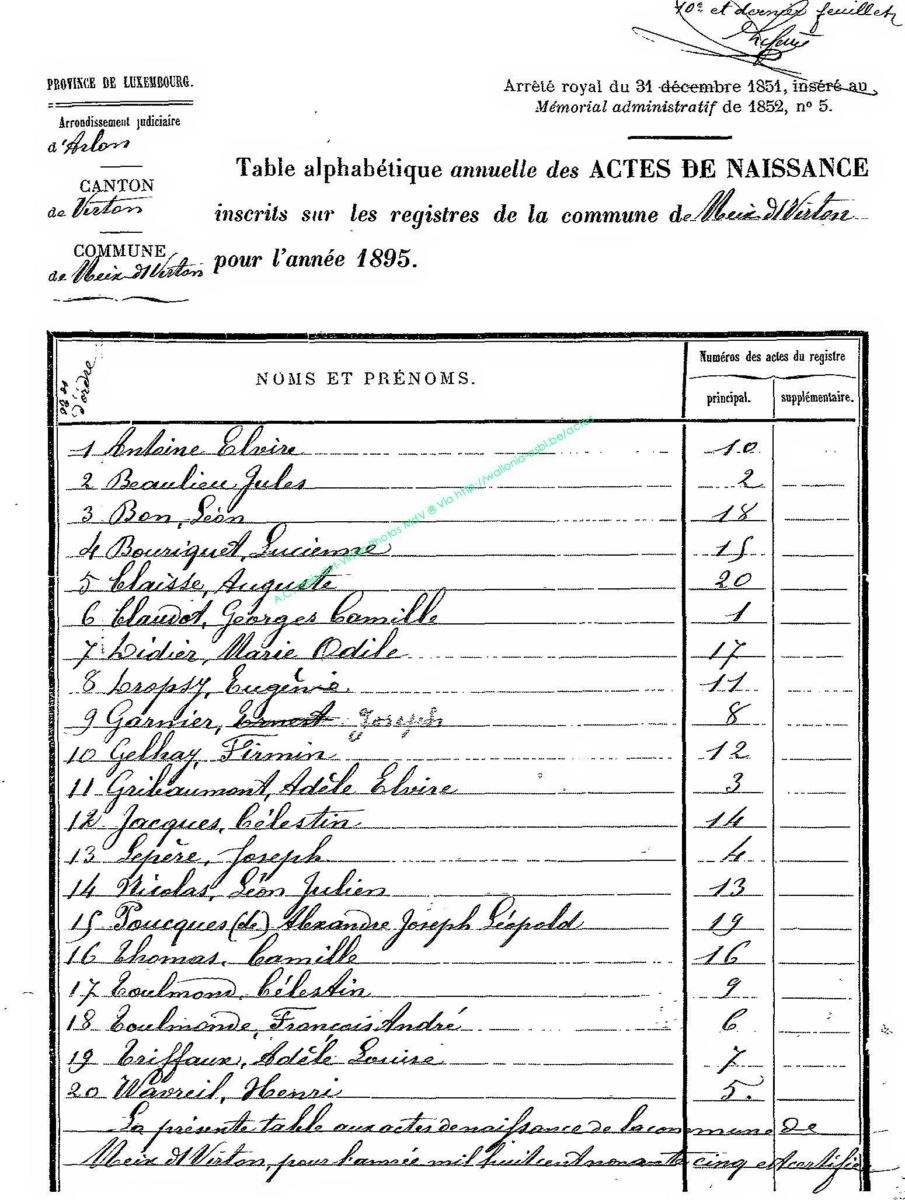 10e et dernier feuillet
PROVINCE DE LUXEMBOURG.
Arrondissement judiciaire
d'Arlon
CANTON
de Virton
COMMUNE
de Meix dt Virton
Arrêté royal du 31 décembre 1851, inséré au
Mémorial administratif de 1852, n° 5.
Table alphabétique annuelle des ACTES DE NAISSANCE
inscrits sur les registres de la commune de Meix dt Virton
pour l'année 1895.
Nos d'ordre
NOMS ET PRÉNOMS.
Numéros des actes du registre
principal. supplémentaire.
1 Antoine Elvire 10
2 Beaulieu Jules 2
3 Bon, Léon 18
4 Bouriquet, Lucienne 15
5 Claisse, Auguste 20
6 Claudot, Georges Camille 1
7 Didier, Marie Odile 17
8 Dropsy, Eugénie 11
9 Garnier, Ernest Joseph 8
10 Gelhay, Firmin 12
11 Gribaumont, Adèle Elvire 3
12 Jacques, Célestin 14
13 Lepère, Joseph 4
14 Nicolas, Léon Julien 13
15 Poucques (de) Alexandre Joseph Léopold 19
16 Thomas, Camille 16
17 Toulmond, Célestin 9
18 Toulmonde, François André 6
19 Triffaux, Adèle Louise 7
20 Wavreil, Henri 5.
La présente table aux actes de naissance de la commune de
Meix dt Virton, pour l'année mil huit cent nonante cinq est certifiée